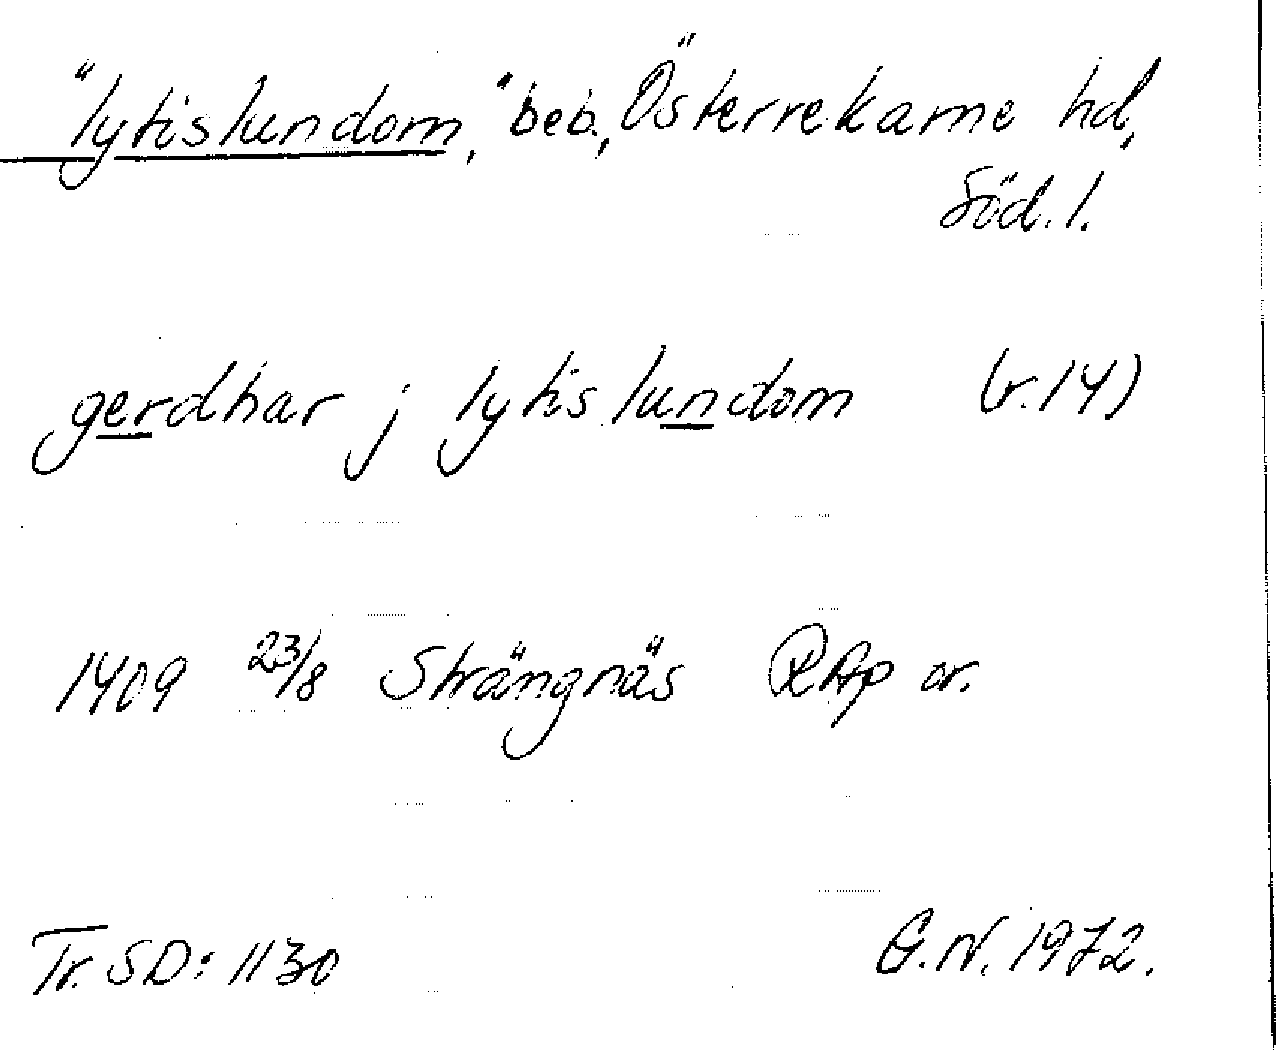 "lytislundom," beb., Österrekarne hd,
Söd. l.
gerdhar j lytislundom (r. 14)
1409 23/8 Strängnäs RAp or.
Tr. SD: 1130
G.N. 1972.